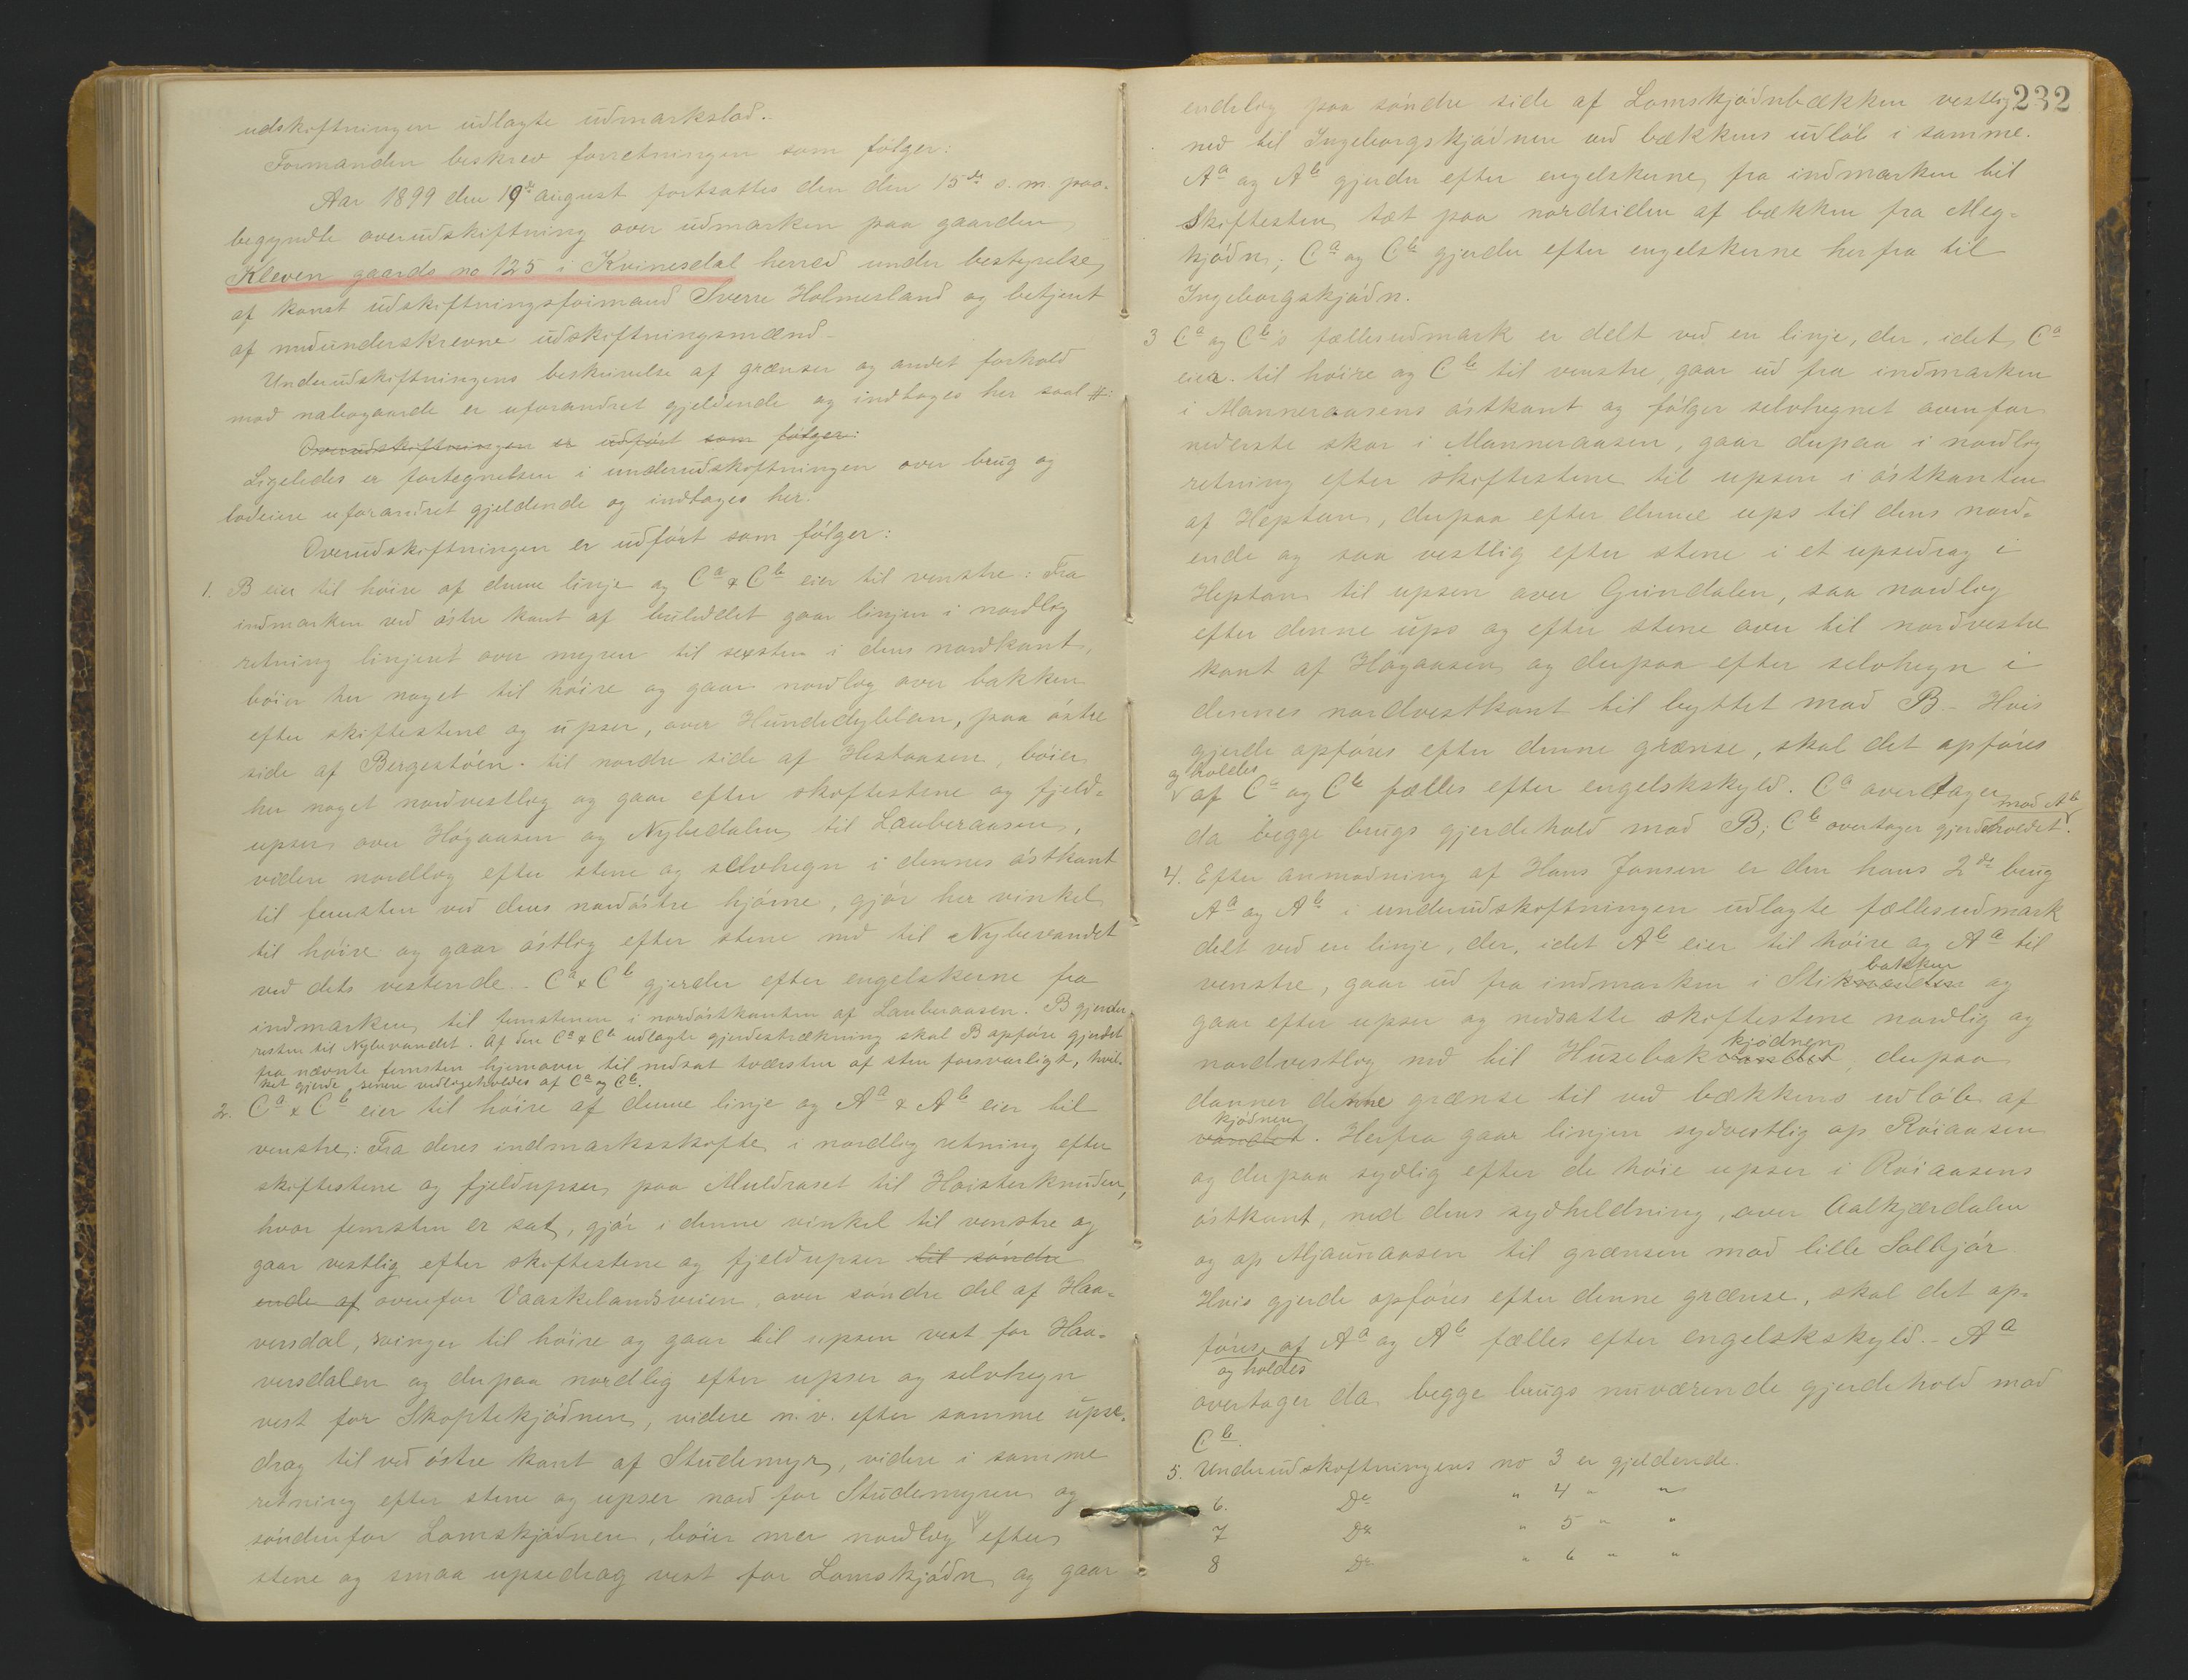 udskiftningen udlagte udmarkslod.-
Formanden beskrev forretningen som følger:
Aar 1899 den 19de august fortsattes den den 15de s. m. paa-
begyndte overudskiftning over udmarken paa gaarden
Kleven gaards no 125 i Kvinesdal herred under bestyrelse
af konst udskiftningsformand Sverre Holmesland og betjent
af medunderskrevne udskiftningsmænd-
Underudskiftningens beskrivelse af grænser og andet forhold
mod nabogaarde er uforandret gjeldende og indtages her saal #:
Overudskiftningen er udført som følger:
Ligeledes er fortegnelsen i underudskiftningen over brug og
lodeiere uforandret gjeldende og indtages her.
Overudskiftningen er udført som følger:
1. B eier til høire af denne linje og Ca & Cb eier til venstre: Fra
indmarken ved østre kant af gaar linjen i nordlig
retning linjeret over myren til sexsten i dens nordkant,
bøier her noget til høire og gaar nordlig over bakken
efter skiftestene og upser, over Hundedyblan, paa østre
side af Bergestøen til nordre side af Hestaasen, bøier
her noget nordvestlig og gaar efter skiftestene og fjeld-
upser over Høgaasen og Nybudalen til Lauberaasen,
videre nordlig efter stene og selvhegn i dennes østkant
til femsten ved dens nordøstre hjørne, gjør her vinkel
til høire og gaar østlig efter stene ned til Nybuvandet
ved dets vestende.- Ca & Cb gjerder efter engelskerne fra
indmarken til femstenen i nordøstkanten af Lauberaasen. B gjerder
resten til Nybuvandet. Af den Ca & Cb udlagte gjerdestrækning skal B opføre gjerdet
fra nævnte femsten hjemover til nedsat tværsten af sten forsvarligt, hvil-
ket gjerde senere vedligeholdes af Ca og Cb.
2. Ca & Cb eier til høire af denne linje og Aa & Ab eier til
venstre: Fra deres indmarksskifte i nordlig retning efter
skiftestene og fjeldupser paa Muldraset til Haisterknuden,
hvor femsten er sat, gjør i denne vinkel til venstre og
gaar vestlig efter skiftestene og fjeldupser til søndre
ende af ovenfor Vaaskelandsveien, over søndre del af Haa-
versdal, svinger til høire og gaar til upsen vest for Haa-
versdalen og derpaa nordlig efter upser og selvhegn
vest for Skoptekjødnen, videre n. v. efter samme upse-
drag til ved østre kant af Studemyr, videre i samme
retning efter stene og upser nord for Studemyren og
søndenfor Lomskjødnen, bøier mer nordlig efter
stene og smaa upsedrag vest for Lomskjødn og gaar
232
endelig paa søndre side af Lomskjødnbækken vestlig
ned til Ingeborgskjødnen ved bækkens udløb i samme.
Aa og Ab gjerder efter engelskerne fra indmarken til
Skiftesten tæt paa nordsiden af bækken fra Meg-
kjødn; Ca og Cb gjerder efter engelskerne herfra til
Ingeborgskjødn.
3 Ca og Cb's fællesudmark er delt ved en linje, der, idet Ca
eier til høire og Cb til venstre, gaar ud fra indmarken
i Manneraasens østkant og følger selvhegnet ovenfor
nederste skar i Manneraasen, gaar derpaa i nordlig
retning efter skiftestene til upsen i østkanten
af Heptan, derpaa efter denne ups til dens nord-
ende og saa vestlig efter stene i et upsedrag i
Heptan til upsen over Grindalen, saa nordlig
efter denne ups og efter stene over til nordvestre
kant af Høgaasen og derpaa efter selvhegn i
dennes nordvestkant til byttet mod B.- Hvis
gjerde opføres efter denne grænse, skal det opføres
og holdes
af Ca og Cb fælles efter engelskskyld. Ca overtager
mod Ab
da begge brugs gjerdehold mod B; Cb overtager gjerdeholdet.
4. Efter anmodning af Hans Jansen er den hans 2de brug
Aa og Ab i underudskiftningen udlagte fællesudmark
delt ved en linje, der, idet Ab eier til høire og Aa til
bakken
venstre, gaar ud fra indmarken i og
gaar efter upser og nedsatte skiftestene nordlig og
kjødnen
nordvestlig ned til Husebakvandet, derpaa
danner denne grænse til ved bækkens udløb af
kjødnen
vandet. Herfra gaar linjen sydvestlig op Røiaasen
og derpaa sydlig efter de høie upser i Røiaasens
østkant, ned dens sydheldning, over Aalkjærdalen
og op Mjaunaasen til grænsen mod lille Solbjør
Hvis gjerde opføres efter denne grænse, skal det op-
føres af Aa og Ab fælles efter engelskskyld.- Aa
og holdes
overtager da begge brugs nuværende gjerdehold mod
Cb.
5. Underudskiftningens no 3 er gjeldende.
6. Do " 4 " "
7 Do " 5 " "
8 Do " 6 " "